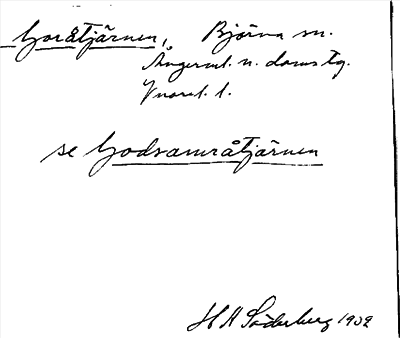 Goråtjärnen, Björna sn.
Ångerml. n. doms tg.
Vnorrl. l.
se Godsamråtjärnen
H A Söderberg 1932